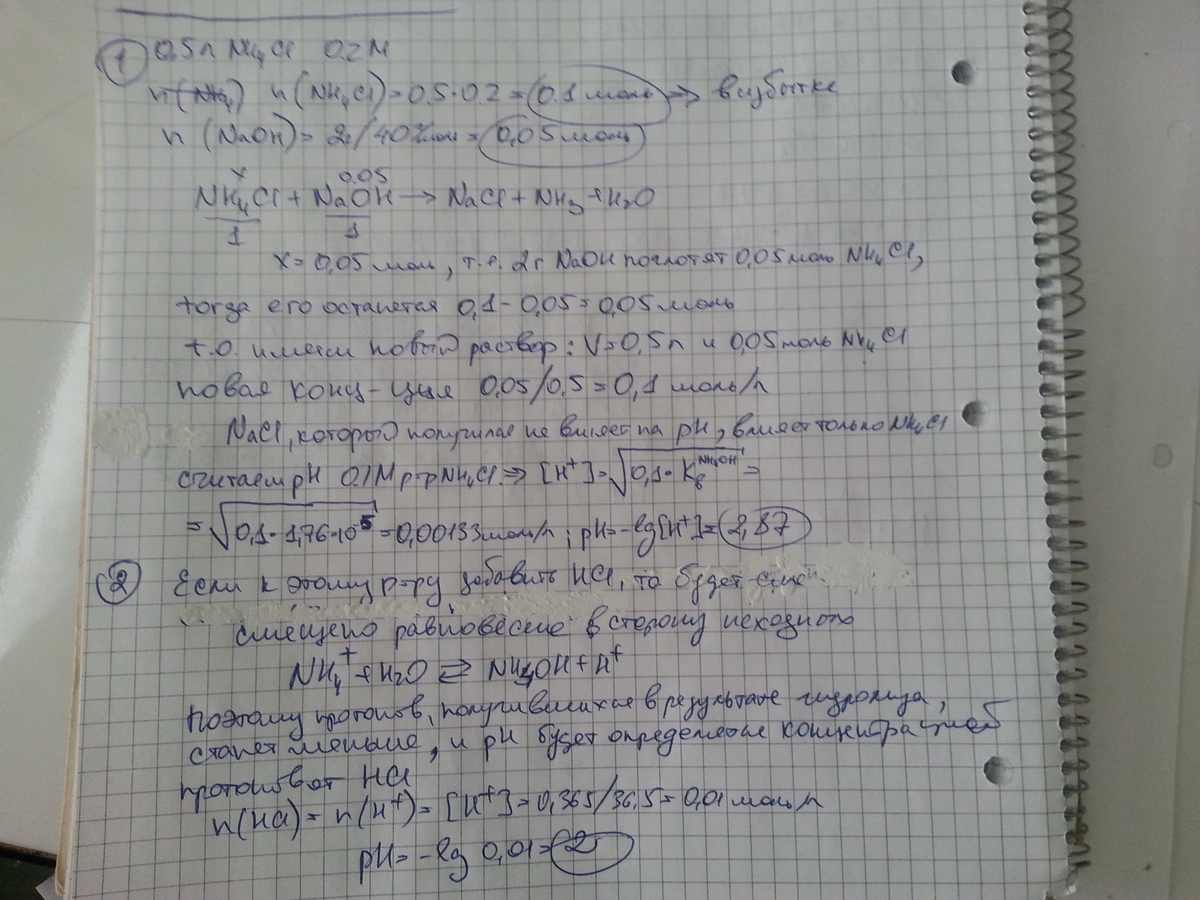 ① 0,5л NH₄Cl 0.2M
n (NH₄Cl) = 0.5·0.2 = 0.1 моль => в избытке
n (NaOH) = 2г/40г/моль = 0,05 моль
x 0.05
NH₄Cl + NaOH → NaCl + NH₃ + H₂O
1 1
x = 0,05 моль, т.е. 2г NaOH поглотят 0,05 моль NH₄Cl,
тогда его останется 0,1 - 0,05 = 0,05 моль
т.о. имеем новый раствор: V = 0,5л и 0,05 моль NH₄Cl
новая конц-ция 0,05/0,5 = 0,1 моль/л
NaCl, который получился не влияет на pH, влияет только NH₄Cl
считаем pH 0,1М р-р NH₄Cl => [H⁺] = √0,1·K_b^NH₄OH =
= √0,1·1,76·10⁻⁵ = 0,00133 моль/л; pH = -lg[H⁺] = 2,87
② Если к этому р-ру добавить HCl, то будет
смещено равновесие в сторону исходного
NH₄⁺ + H₂O ⇄ NH₄OH + H⁺
поэтому протонов, получившихся в результате гидролиза,
станет меньше, и pH будет определение концентрацией
протонов от HCl
n(HCl) = n(H⁺) = [H⁺] = 0,365/36,5 = 0,01 моль/л
pH = -lg 0,01 = 2